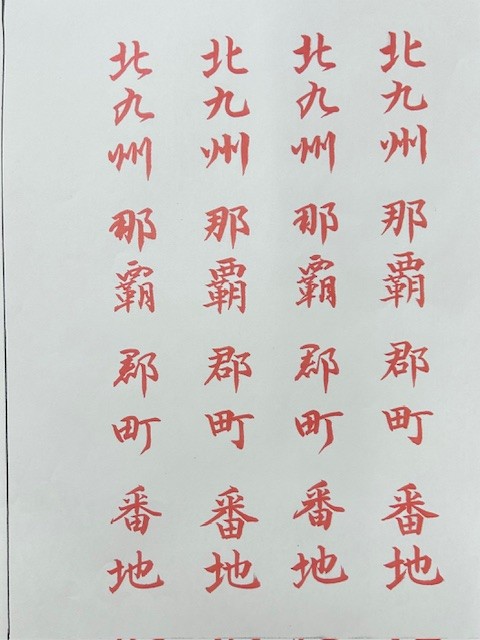 北九州 那覇 郡町 番地
北九州 那覇 郡町 番地
北九州 那覇 郡町 番地
北九州 那覇 郡町 番地